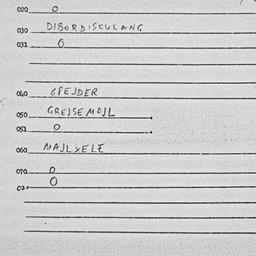 020 0
030 DIBORDISCULANG
031 6
040 GPEJDER
050 GREJSEMOJL
051 0
060 NAJLXELE
070 0
071 0